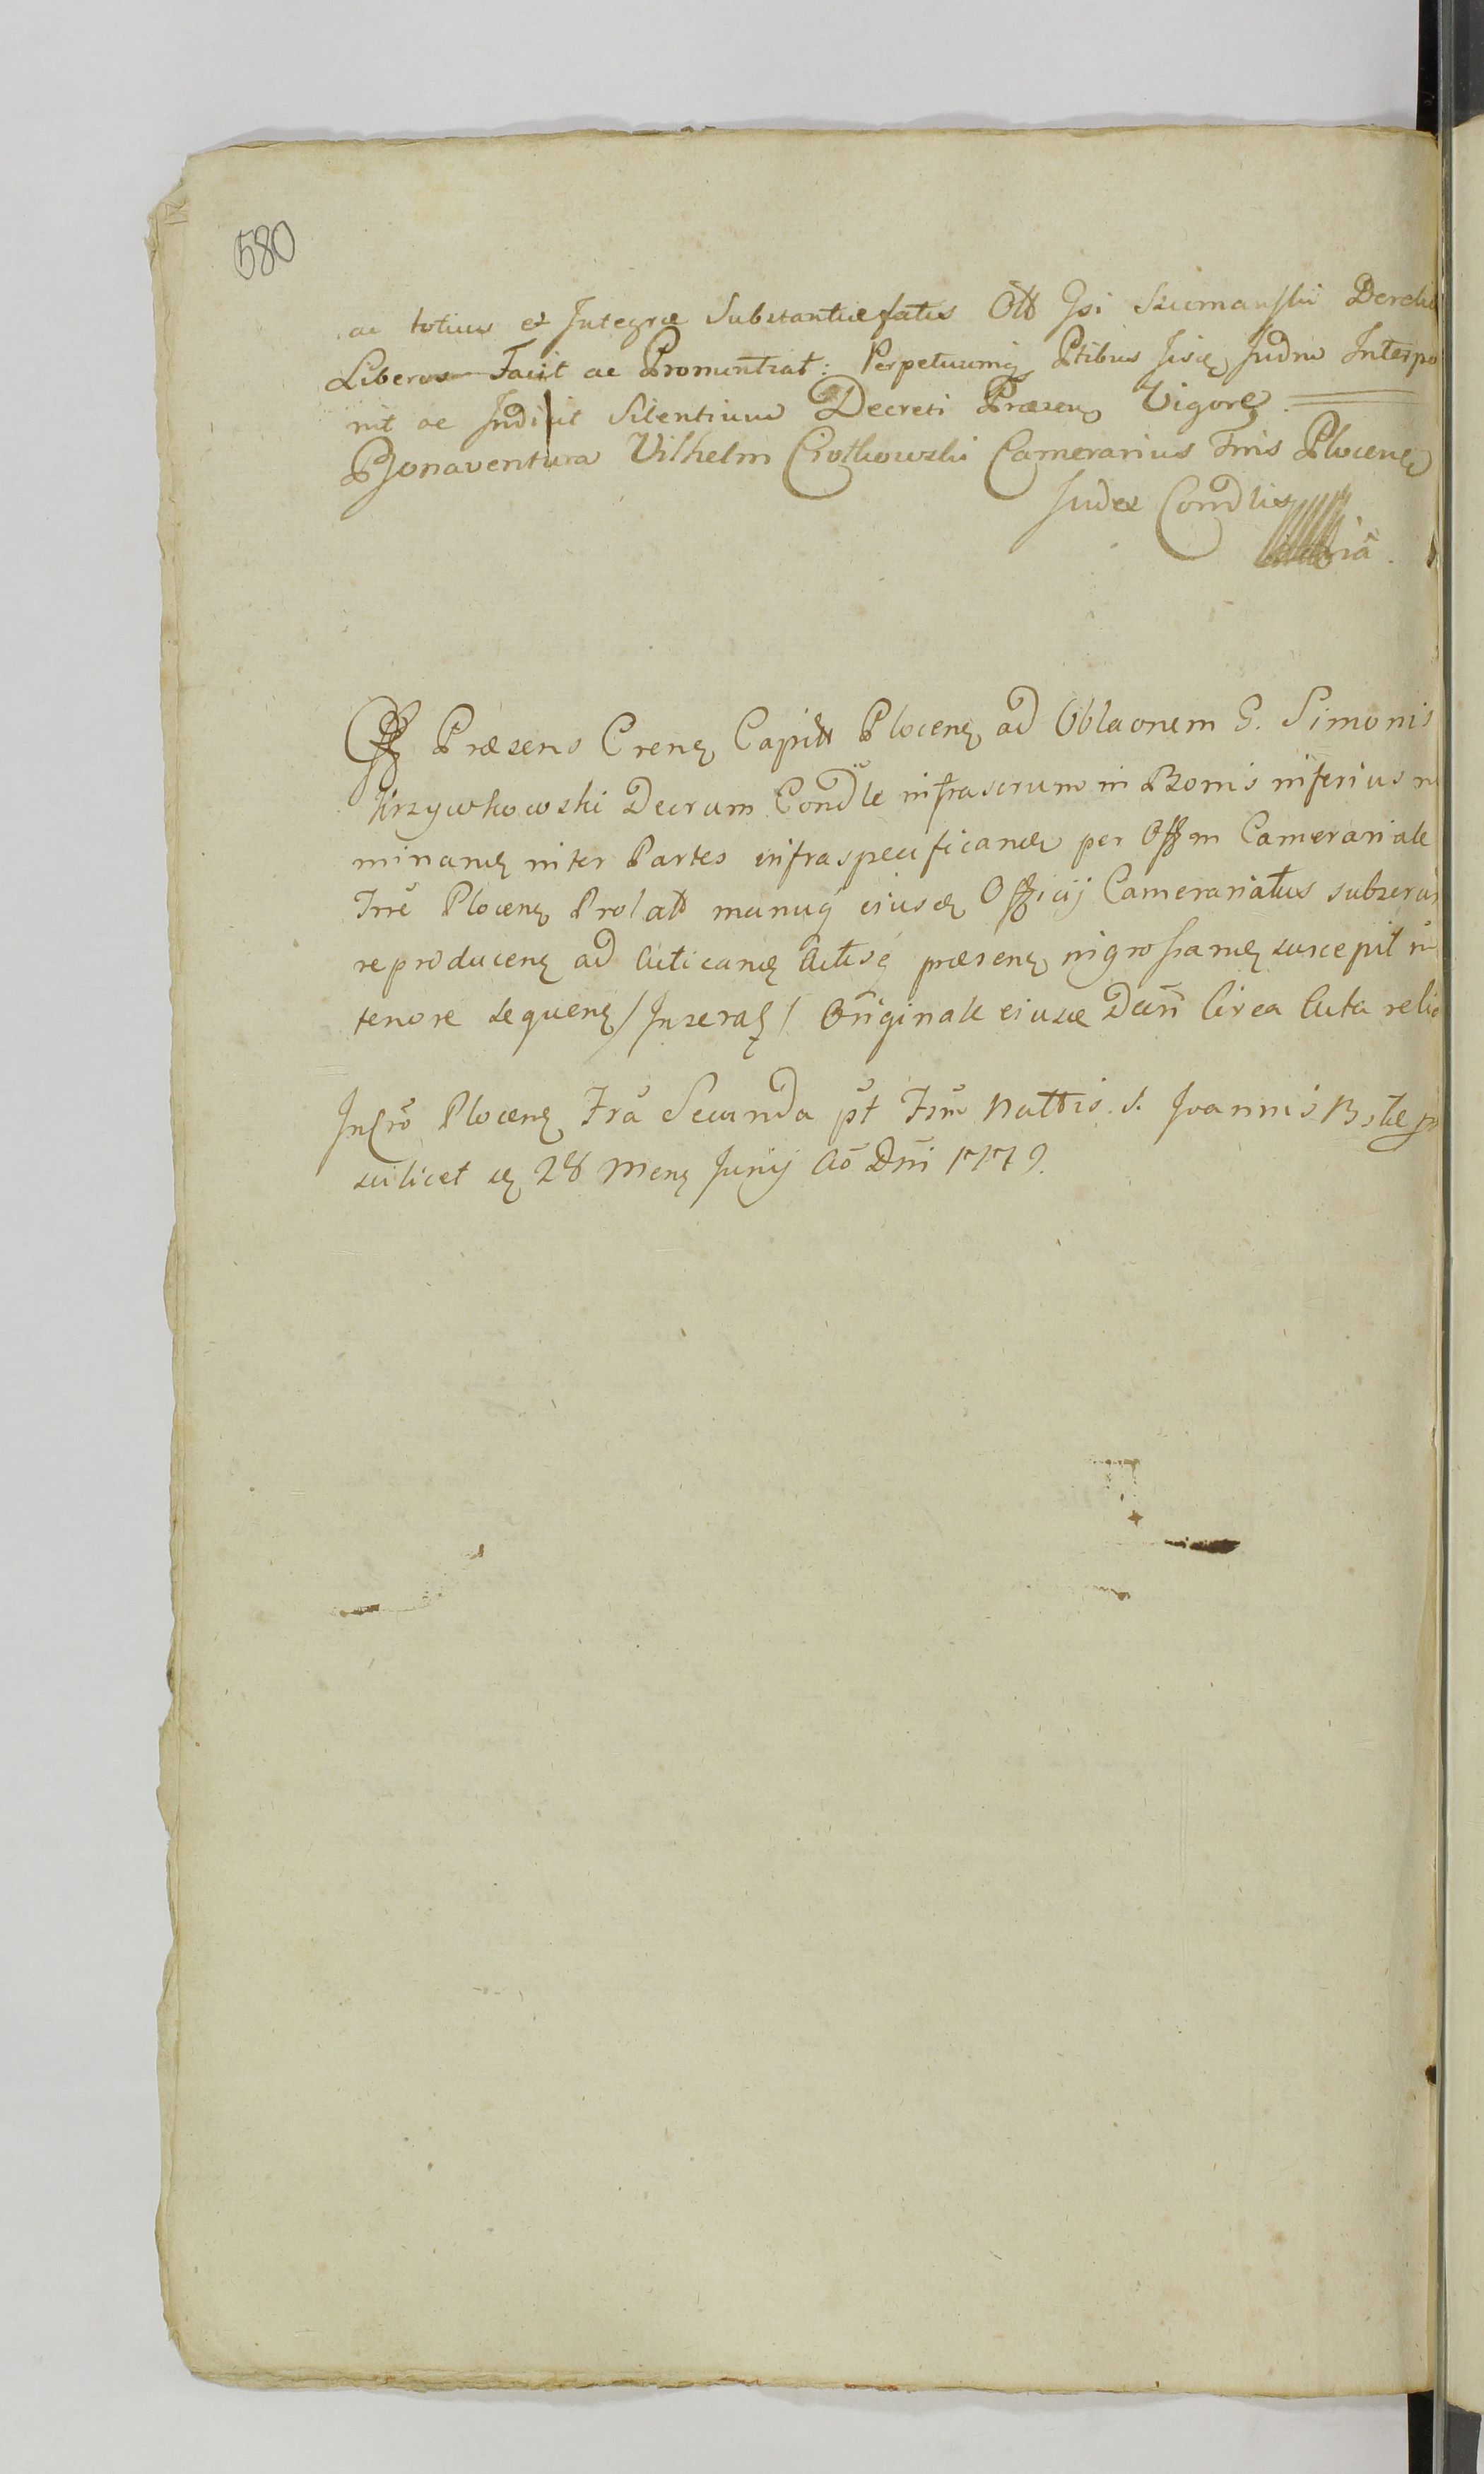 580
ac totius et Integræ Substantiæ fatus Ott Gsi Szumanski Derelic
Liberos Facit ac Pronuntiat: Perpetuumq Ptibus hisce Judm Interpo
nit ac Indicit Silentium Decreti Præsen Vigore.
Bonaventura Vilhelm Ciolkowski Camerarius Tris Plocen
Judex Condlis
Off Præsens Cren Capitt Plocen ad Oblaonem G. Simonis
Krzywkowski Decrum Condle infrascrum in Bonis inferius no
minan inter Partes infraspecifican per Offm Camerariale
Trre Plocen Prolatt manuq eiusd Officij Camerariatus subscru
reproducen ad Acticand Actisq præsen ingrossand suscepit in
tenore sequen / Inserat / Originale eiusd Dcti Circa Acta relic
In Cro Plocen Fra Secunda pt Fsm Nattis S. Joannis B.
scilicet d 28 Mens Junij Ao Dni 1779.